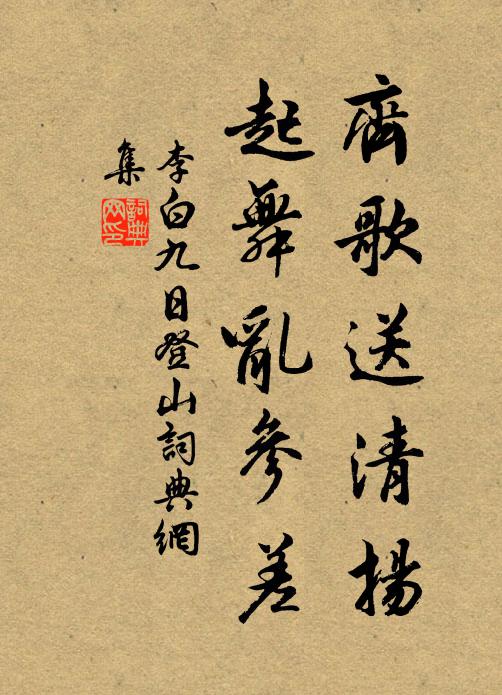 齊歌送清揚
起舞亂參差
李白九日登山詞典網
集
詞典網印